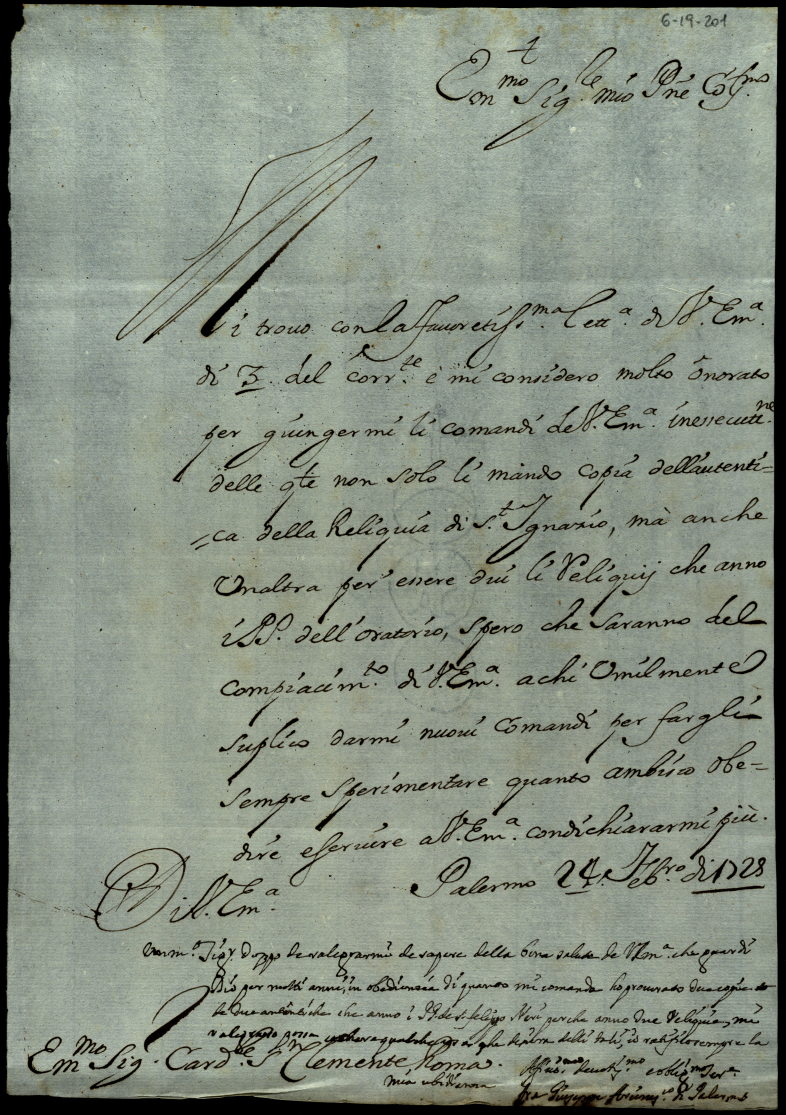 6-19-201
+
Em.mo Sig.re mio Pne Col.mo
Mi trovo con la favoretiss.ma lett.a di V. Em.a
di 3 del corr.te e mi considero molto onorato
per giungermi li comandi de V. Em.a in essecuti.ne
delle qle non solo li mando copia dell'autenti=
=ca della Reliquia di S.t Ignazio, mà anche
Unaltra per essere dui li Reliquij che anno
i PP. dell'oratorio, spero che saranno del
compiacim.to di V. Em.a a chi Umilmente
suplico darmi nuovi comandi per fargli
sempre sperimentare quanto ambisco obe=
dire e servire a V. Em.a con dichiararmi più.
Palermo 24 Febro di 1728
Di V. Em.a
Doppo de ralegrarmi de sapere della bona salute de V. Em.a che guardi
Dio per molti anni, in obedienza di quanto mi comanda ho procurato due copie
le due autentiche che anno i PP. de S. Felippo Neri perche anno due Reliquie, mi
sempre la
mia ubidienza
Em.mo Sig. Card.le S. Clemente Roma.
di Palermo